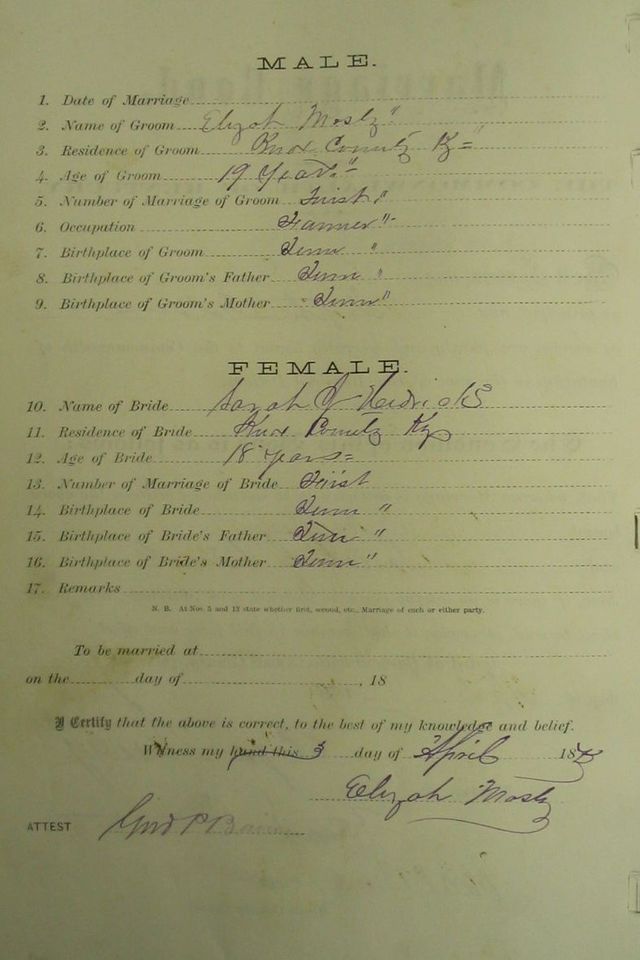 MALE.
1. Date of Marriage
2. Name of Groom Elizah Mosly "
3. Residence of Groom Knox County Ky = "
4. Age of Groom 19 Years "
5. Number of Marriage of Groom First "
6. Occupation Farmer "
7. Birthplace of Groom Tenn "
8. Birthplace of Groom's Father Tenn "
9. Birthplace of Groom's Mother Tenn "
FEMALE.
10. Name of Bride Sarah J Hedricks
11. Residence of Bride Knox County Ky
12. Age of Bride 18 years =
13. Number of Marriage of Bride First
14. Birthplace of Bride Tenn "
15. Birthplace of Bride's Father Tenn "
16. Birthplace of Bride's Mother Tenn "
17. Remarks
N. B. At Nos. 5 and 13 state whether first, second, etc., Marriage of each or either party.
To be married at
on the day of , 18
I Certify that the above is correct, to the best of my knowledge and belief.
Witness my hand this 3 day of April 18
Elizah Mosly
ATTEST